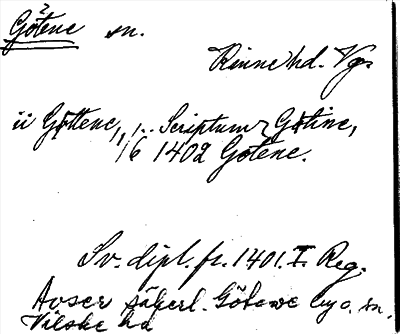 Götene sn.
Kinne hd. Vg.
ii Gøttene, 1/6 1402 ... Scriptum Gøtine, Gotene.
Sv. dipl. fr. 1401. I. Reg.
Avser säkerl. Götewe by o. sn.
Vilske hd